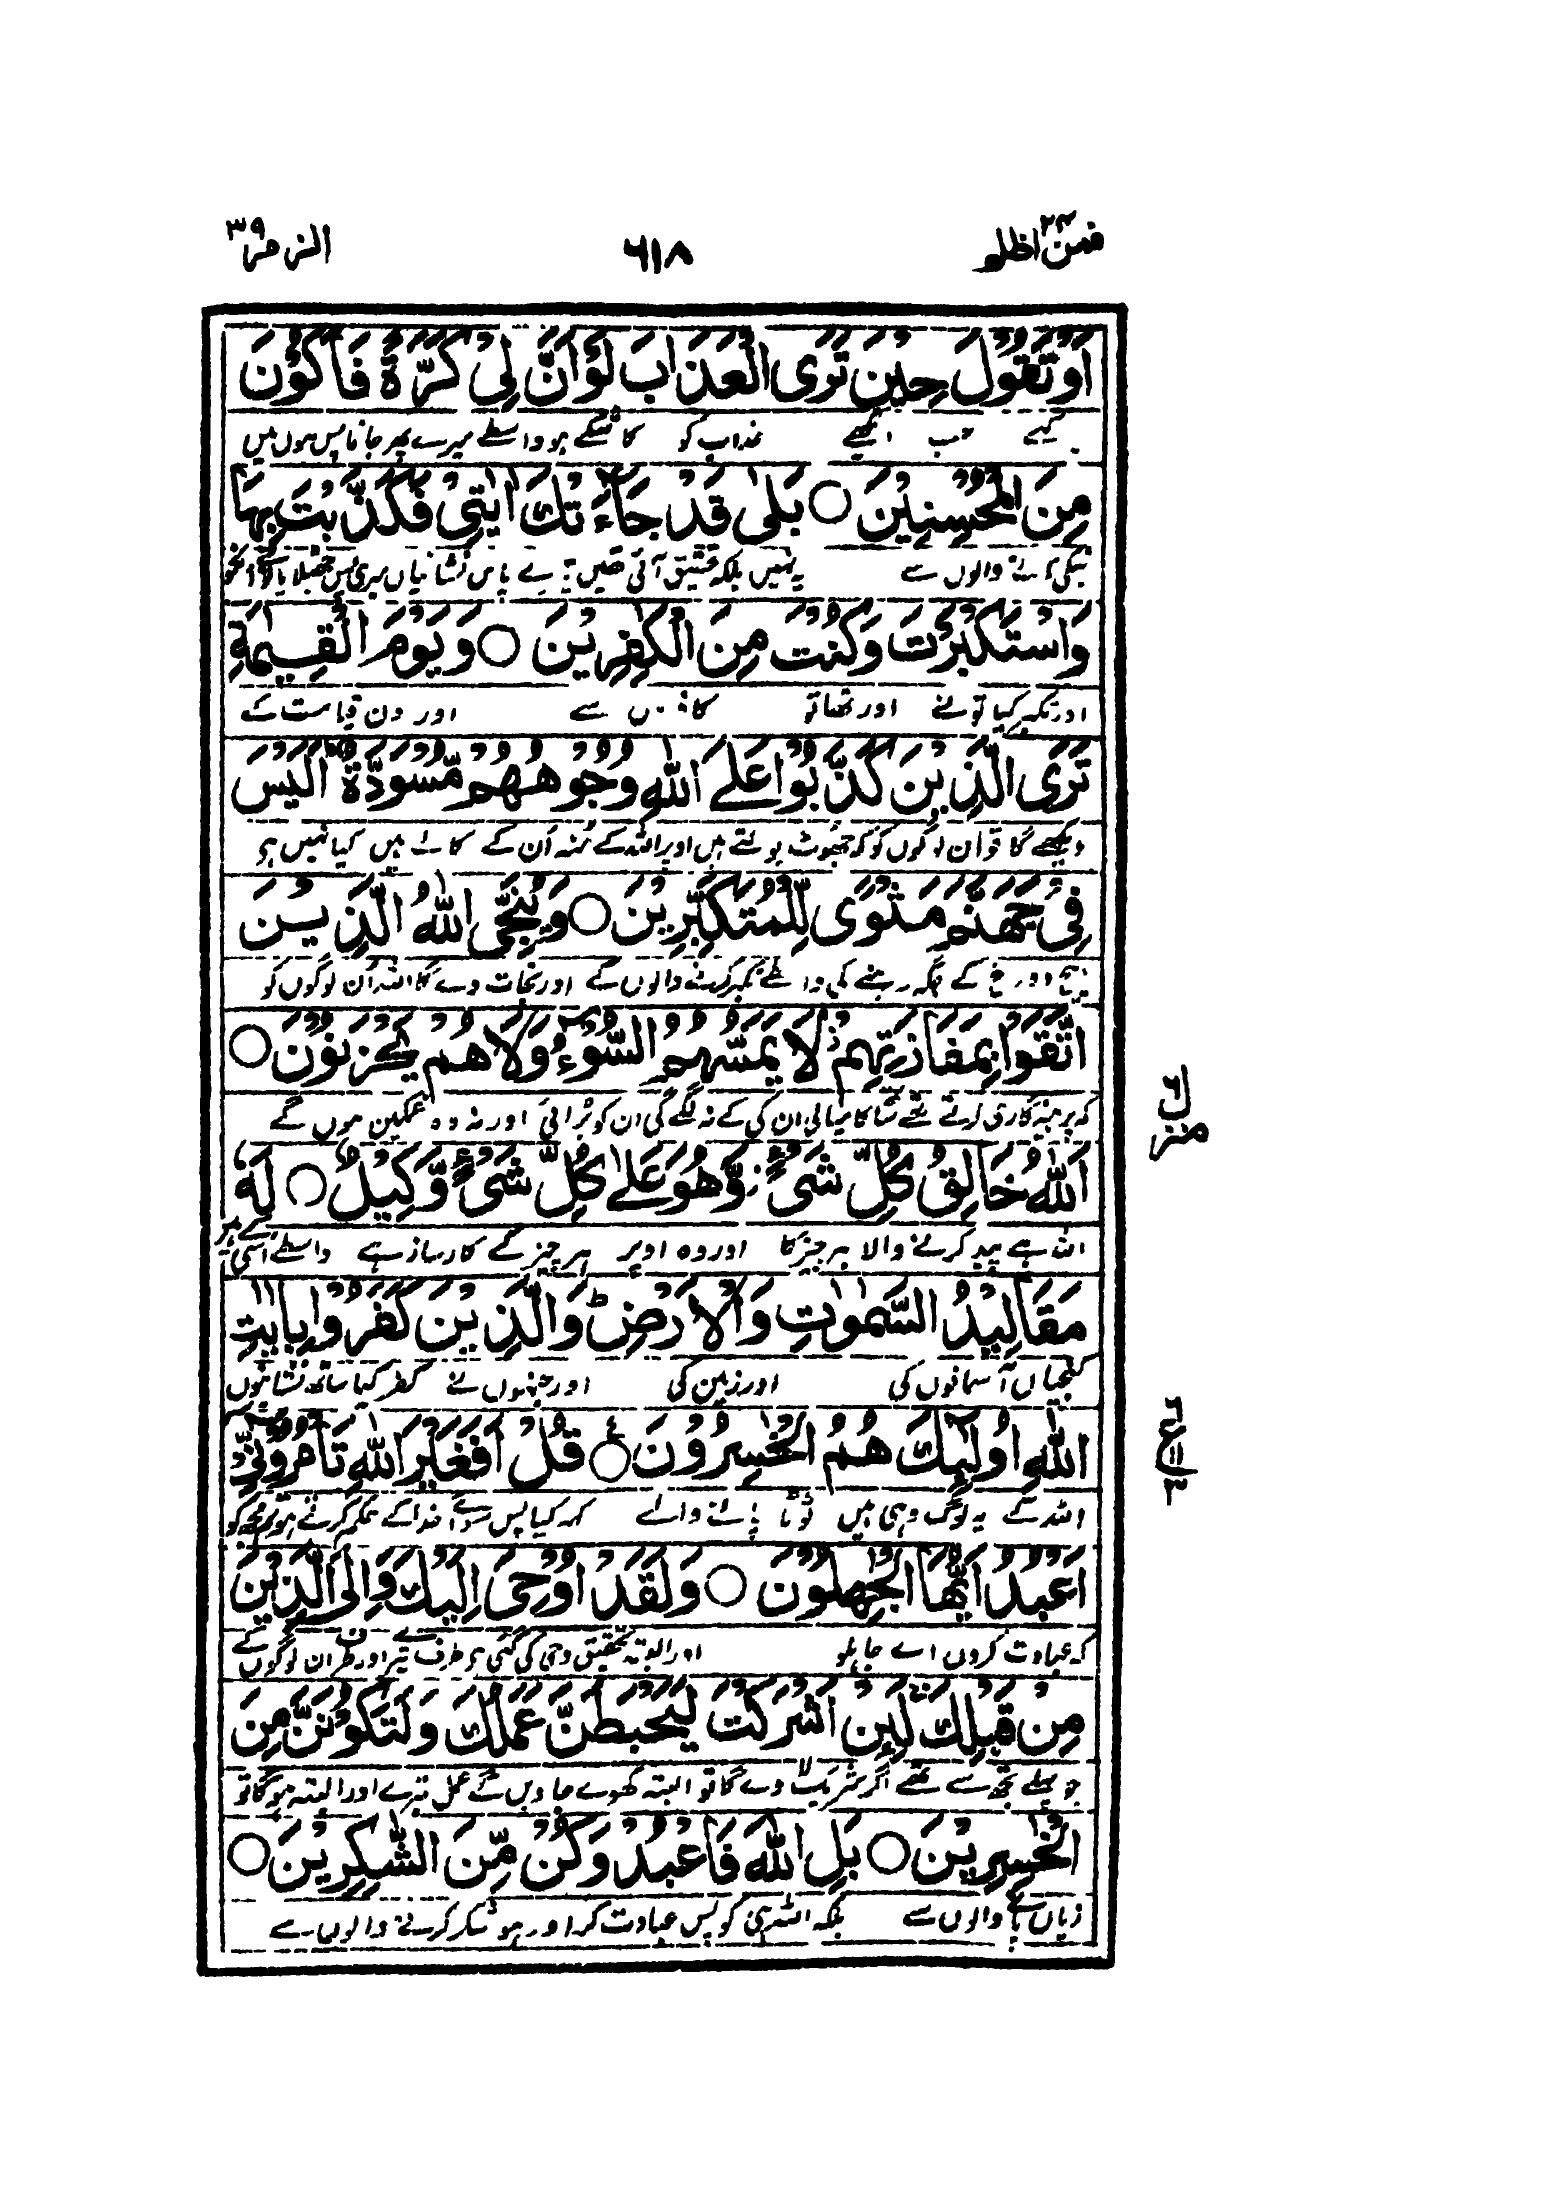 فمن اظلم ٢٤
٦١٨
الزمر ٣٩
اَوْ تَقُوْلَ حِيْنَ تَرَى الْعَذَابَ لَوْ اَنَّ لِيْ كَرَّةً فَاَكُوْنَ
کہے جب دیکھے عذاب کو کاشکے ہو واسطے میرے پھر جانا پس ہوں میں
مِنَ الْمُحْسِنِيْنَ ○ بَلٰى قَدْ جَآءَتْكَ اٰيٰتِيْ فَكَذَّبْتَ بِهَا
نیکی کرنے والوں سے یہ نہیں بلکہ تحقیق آئی تھیں تیرے پاس نشانیاں میری پس جھٹلایا تو نے انکو
وَاسْتَكْبَرْتَ وَكُنْتَ مِنَ الْكٰفِرِيْنَ ○ وَيَوْمَ الْقِيٰمَةِ
اور تکبر کیا تونے اور تھا تو کافروں سے اور دن قیامت کے
تَرَى الَّذِيْنَ كَذَبُوْا عَلَى اللّٰهِ وُجُوْهُهُمْ مُّسْوَدَّةٌ ؕ اَلَيْسَ
دیکھے گا تو ان لوگوں کو کہ جھوٹ بولتے ہیں اوپر اللہ کے منہ اُن کے کالے ہیں کیا نہیں ہے
فِيْ جَهَنَّمَ مَثْوًى لِّلْمُتَكَبِّرِيْنَ ○ وَيُنَجِّى اللّٰهُ الَّذِيْنَ
بیچ دوزخ کے جگہ رہنے کی واسطے تکبر کرنے والوں کے اور نجات دے گا اللہ اُن لوگوں کو
اتَّقَوْا بِمَفَازَتِهِمْ ز لَا يَمَسُّهُمُ السُّوْٓءُ وَلَا هُمْ يَحْزَنُوْنَ ○
کہ پرہیزگاری کرتے تھے ساتھ کامیابی ان کی کے نہ لگے گی ان کو بُرائی اور نہ وہ غمگین ہوں گے
اَللّٰهُ خَالِقُ كُلِّ شَيْءٍ ز وَّهُوَ عَلٰى كُلِّ شَيْءٍ وَّكِيْلٌ ○ لَهٗ
اللہ ہے پیدا کرنے والا ہر چیز کا اور وہ اوپر ہر چیز کے کارساز ہے واسطے اسی کے ہیں
مَقَالِيْدُ السَّمٰوٰتِ وَالْاَرْضِ ؕ وَالَّذِيْنَ كَفَرُوْا بِاٰيٰتِ
کنجیاں آسمانوں کی اور زمین کی اور جنہوں نے کفر کیا ساتھ نشانیوں
اللّٰهِ اُولٰٓئِكَ هُمُ الْخٰسِرُوْنَ ○ قُلْ اَفَغَيْرَ اللّٰهِ تَاْمُرُوْٓنِّيْٓ
اللہ کے یہ لوگ وہی ہیں ٹوٹا پانے والے کہہ کیا پس سوائے خدا کے حکم کرتے ہو تم مجھ کو
اَعْبُدُ اَيُّهَا الْجٰهِلُوْنَ ○ وَلَقَدْ اُوْحِيَ اِلَيْكَ وَاِلَى الَّذِيْنَ
کہ عبادت کروں اے جاہلو اور البتہ تحقیق وحی کی گئی ہے طرف تیری اور طرف ان لوگوں کے
مِنْ قَبْلِكَ لَئِنْ اَشْرَكْتَ لَيَحْبَطَنَّ عَمَلُكَ وَلَتَكُوْنَنَّ مِنَ
جو پہلے تجھ سے تھے اگر شریک لاوے گا تو البتہ کھوئے جاویں گے عمل تیرے اور البتہ ہوگا تو
الْخٰسِرِيْنَ ○ بَلِ اللّٰهَ فَاعْبُدْ وَكُنْ مِّنَ الشّٰكِرِيْنَ ○
زیاں پانے والوں سے بلکہ اللہ ہی کو پس عبادت کر اور ہو شکر کرنے والوں سے
منزل ٦
٦
ع
١١
٣